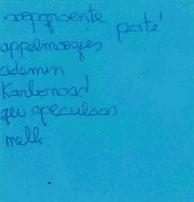 soepgroente
paté
appelmoesjes
Karbonaad
speculaas
melk